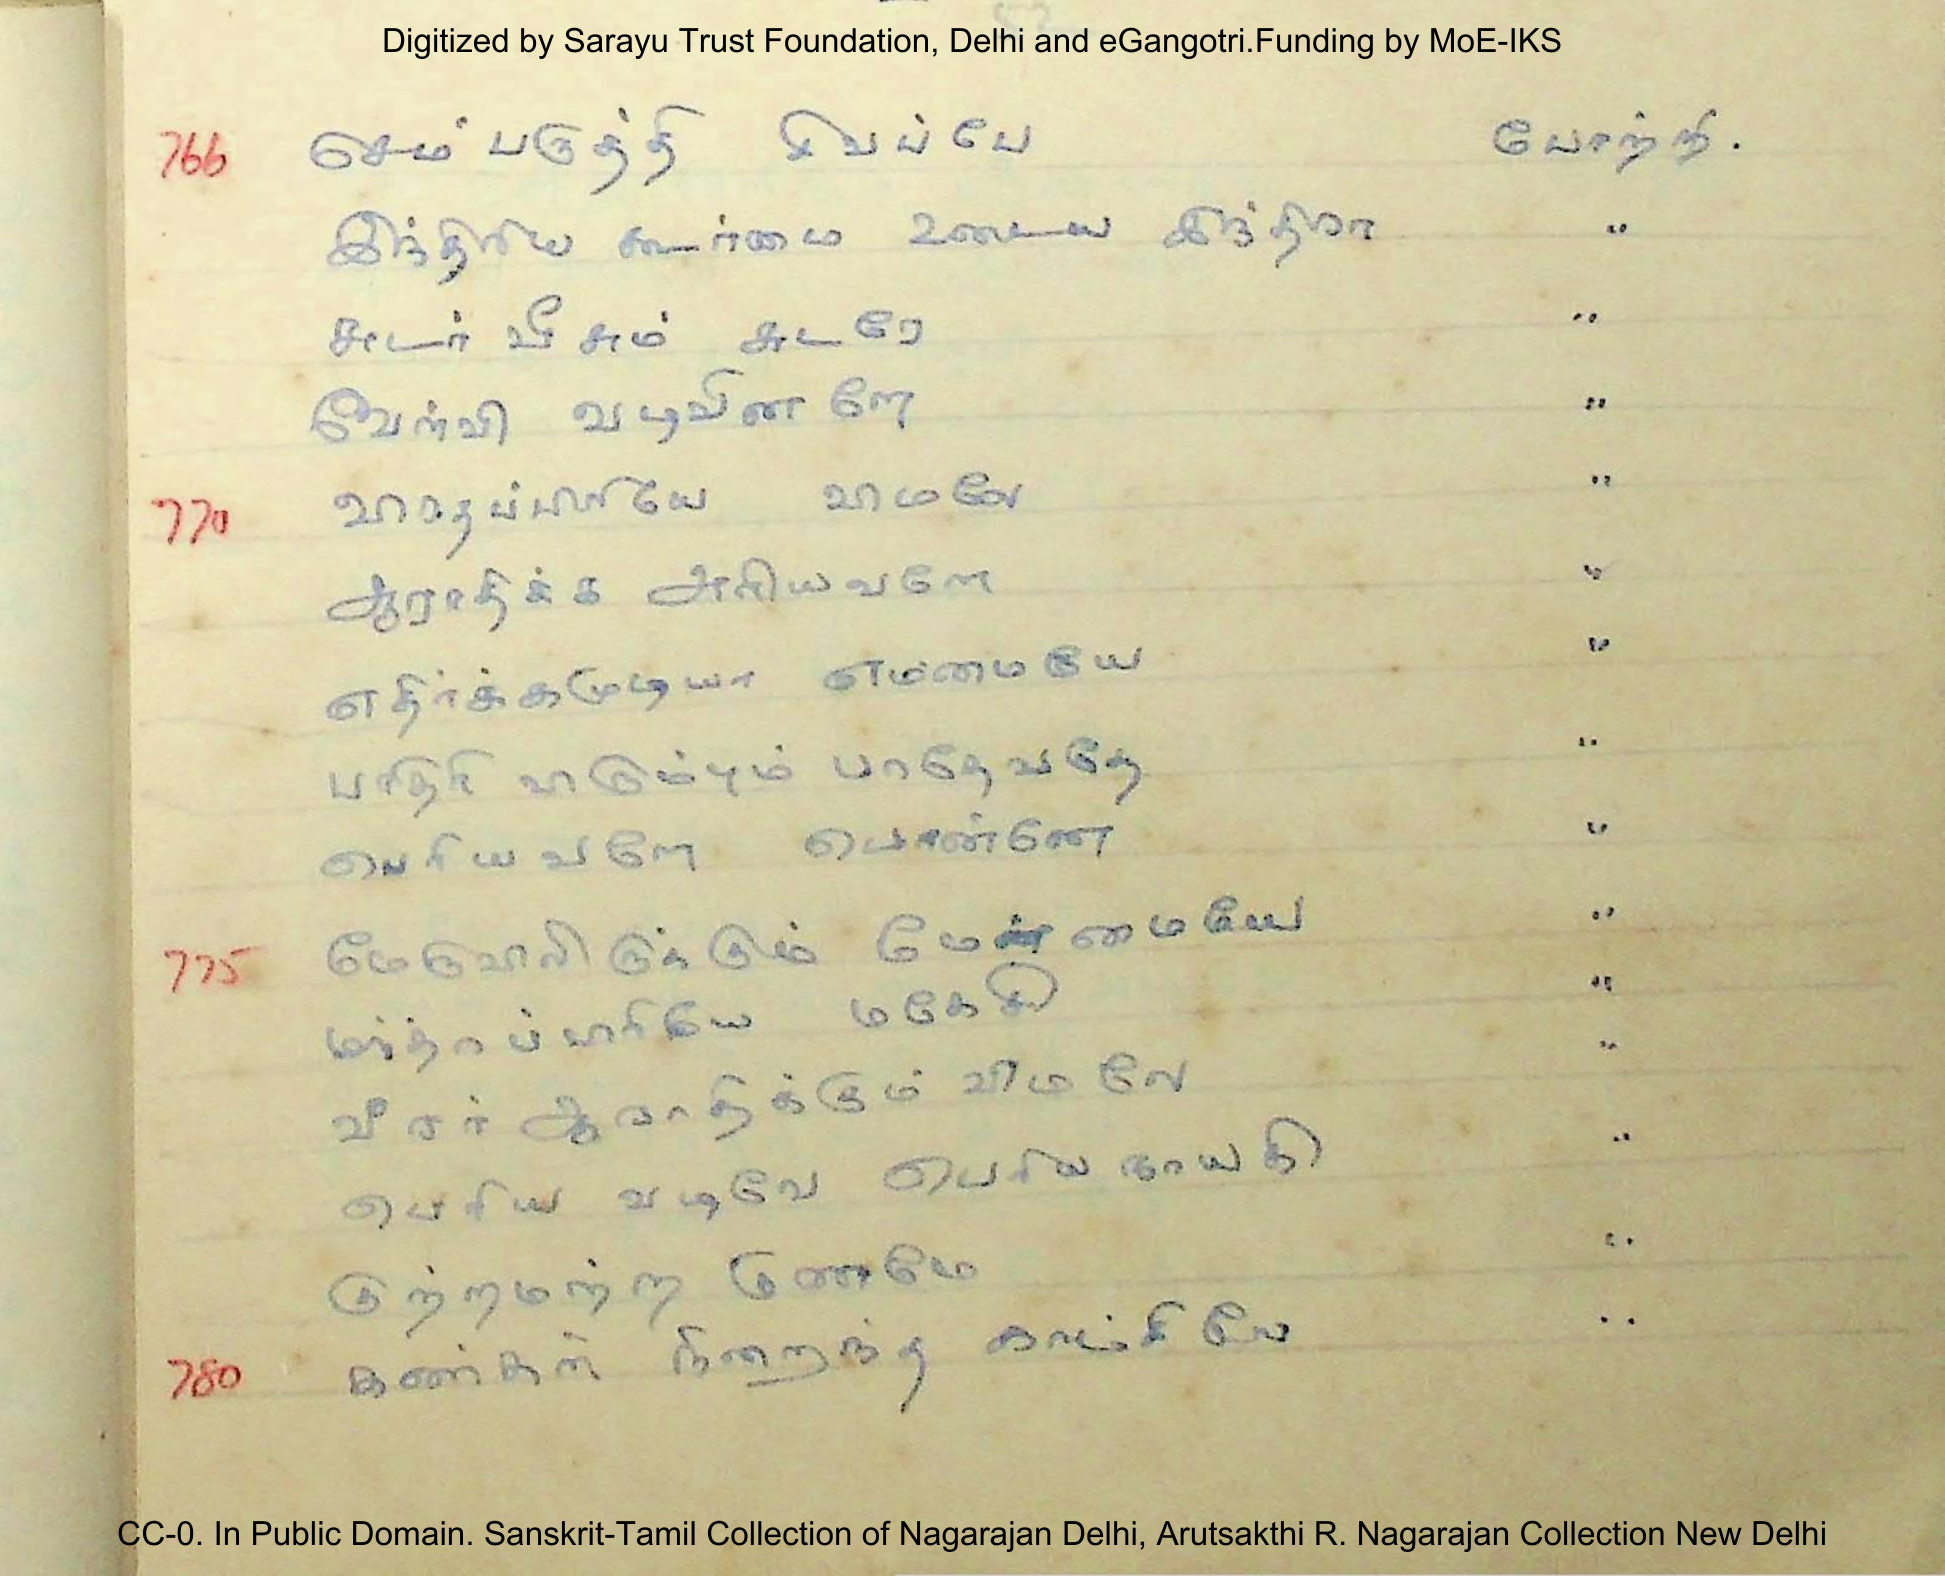 Digitized by Sarayu Trust Foundation, Delhi and eGangotri.Funding by MoE-IKS
766 செம்பருத்தி சிவப்பே போற்றி.
இந்திரிய கூர்மை உடைய இந்திரா "
சுடர் வீசும் சுடரே "
வேள்வி வடிவினளே "
770 வாதப்பிரியே "
ஆராதிக்க அரியவளே "
எதிர்க்கமுடியா எம்மையே "
விரும்பும் "
பெரியவளே பெண்ணே "
775 மேருவிலிருக்கும் மேன்மையே "
மகேசி "
வீரர் ஆராதிக்கும் விமலே "
பெரிய வடிவே பெரியநாயகி "
குற்றமற்ற குணமே "
780 கண்கள் நிறைந்த காட்சியே "
CC-0. In Public Domain. Sanskrit-Tamil Collection of Nagarajan Delhi, Arutsakthi R. Nagarajan Collection New Delhi